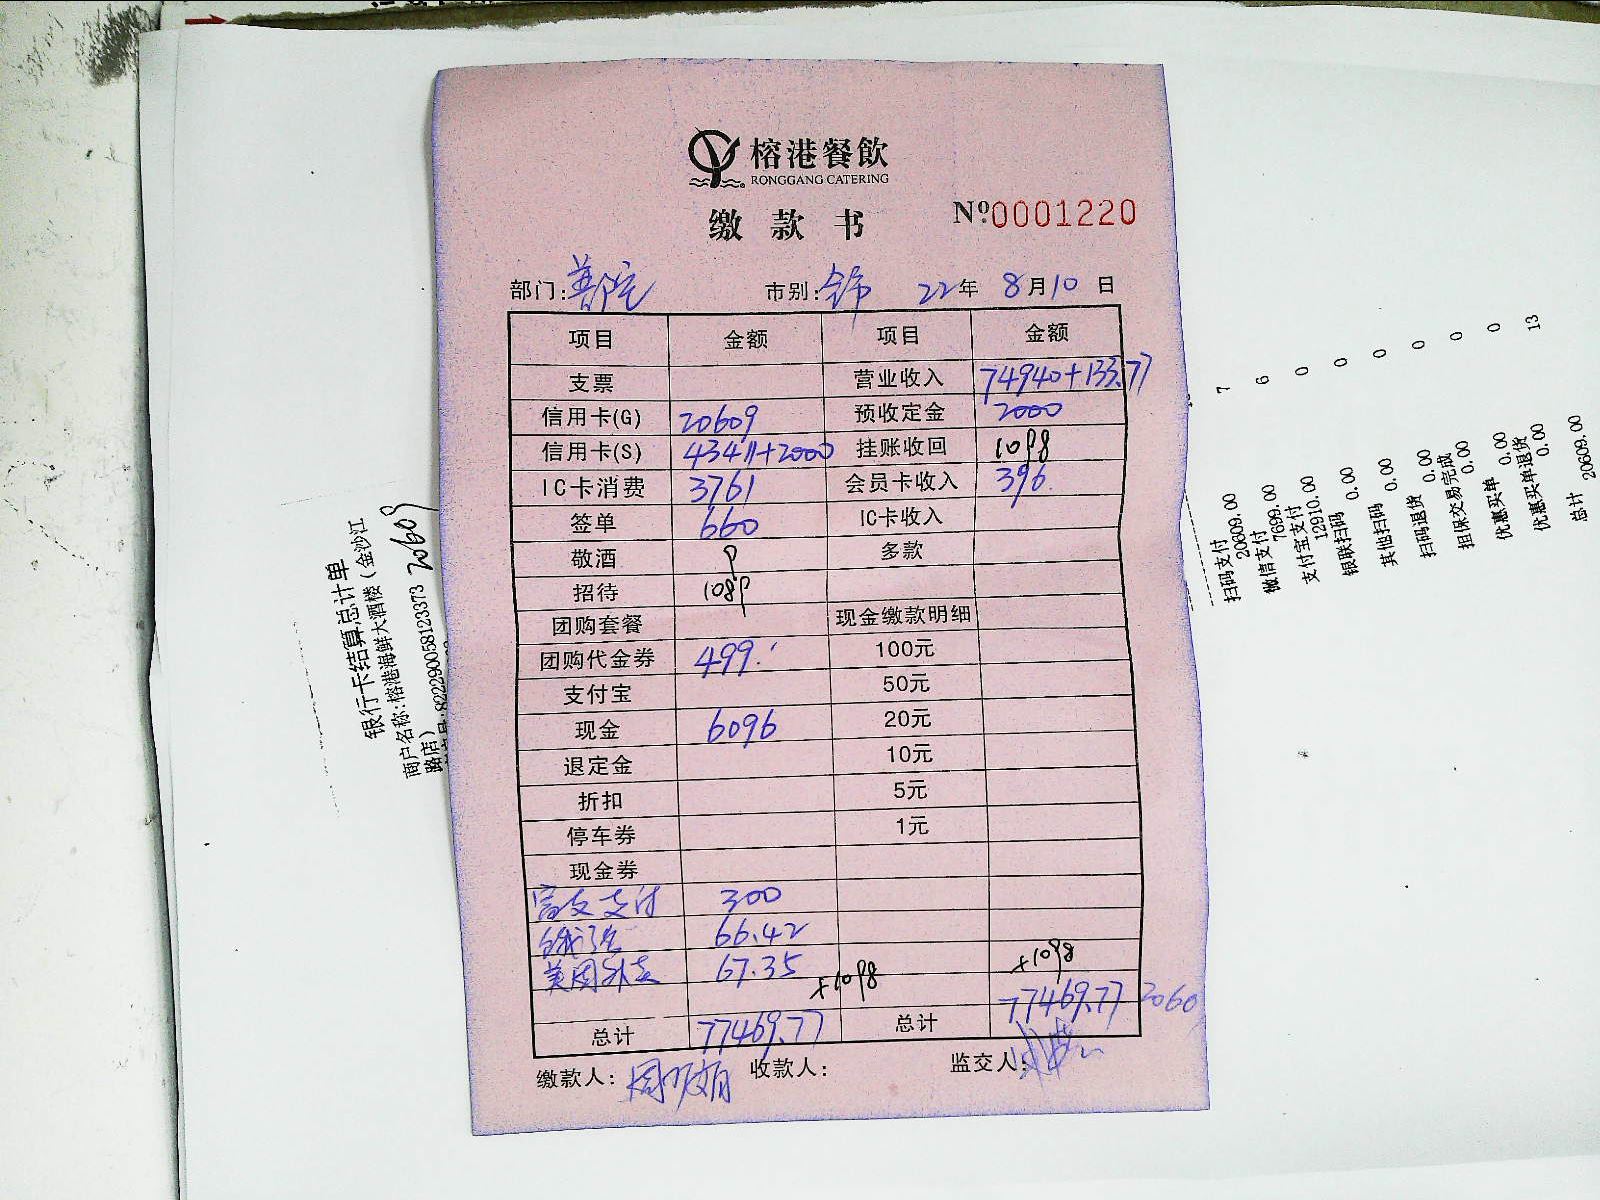 榕港餐飲
RONGGANG CATERING
缴款书 Nº:0001220
部门:普陀 市别:全市 22年 8月10日
项目 金额 项目 金额
支票 营业收入 74940+133.77
信用卡(G) 20609 预收定金 2000
信用卡(S) 43411+2000 挂账收回 1098
IC卡消费 3761 会员卡收入 396.
签单 660 IC卡收入
敬酒 多款
招待
团购套餐 现金缴款明细
团购代金券 499. 100元
支付宝 50元
现金 6096 20元
退定金 10元
折扣 5元
停车券 1元
现金券
300
饿了么 66.42
美团外卖 67.35 +1098 +1098
总计 77469.77 总计 77469.77 2060
缴款人: 收款人: 监交人:
银行卡结算总计单
商户名称:榕港海鲜大酒楼(金沙江
路店)
82229005812337​3 20609
7
6
0
0
0
0
0
0
13
扫码支付
20609.00
微信支付
7699.00
支付宝支付
12910.00
银联扫码
0.00
其他扫码
0.00
扫码退货
0.00
担保交易完成
0.00
优惠买单
0.00
优惠买单退货
0.00
总计 20609.00